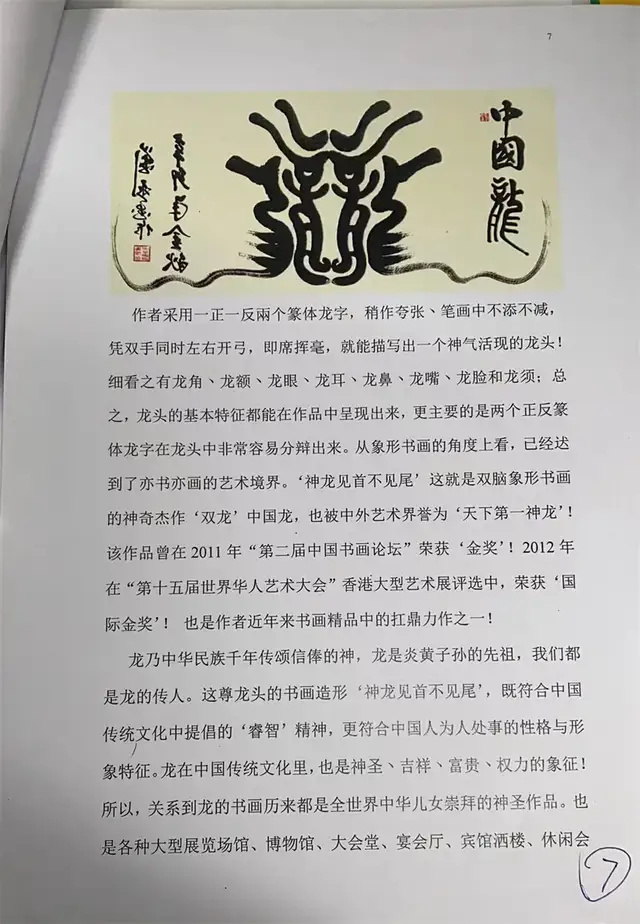 7
中國龍
辛卯年金秋
作者采用一正一反兩個篆体龙字，稍作夸张、笔画中不添不减，
凭双手同时左右开弓，即席挥毫，就能描写出一个神气活现的龙头！
细看之有龙角、龙额、龙眼、龙耳、龙鼻、龙嘴、龙脸和龙须；总
之，龙头的基本特征都能在作品中呈现出来，更主要的是两个正反篆
体龙字在龙头中非常容易分辩出来。从象形书画的角度上看，已经达
到了亦书亦画的艺术境界。‘神龙见首不见尾’这就是双脑象形书画
的神奇杰作‘双龙’中国龙，也被中外艺术界誉为‘天下第一神龙’！
该作品曾在 2011 年“第二届中国书画论坛”荣获‘金奖’！2012 年
在“第十五届世界华人艺术大会”香港大型艺术展评选中，荣获‘国
际金奖’！ 也是作者近年来书画精品中的扛鼎力作之一！
龙乃中华民族千年传颂信俸的神，龙是炎黄子孙的先祖，我们都
是龙的传人。这尊龙头的书画造形‘神龙见首不见尾’，既符合中国
传统文化中提倡的‘睿智’精神，更符合中国人为人处事的性格与形
象特征。龙在中国传统文化里，也是神圣、吉祥、富贵、权力的象征！
所以，关系到龙的书画历来都是全世界中华儿女崇拜的神圣作品。也
是各种大型展览场馆、博物馆、大会堂、宴会厅、宾馆洒楼、休闲会
7